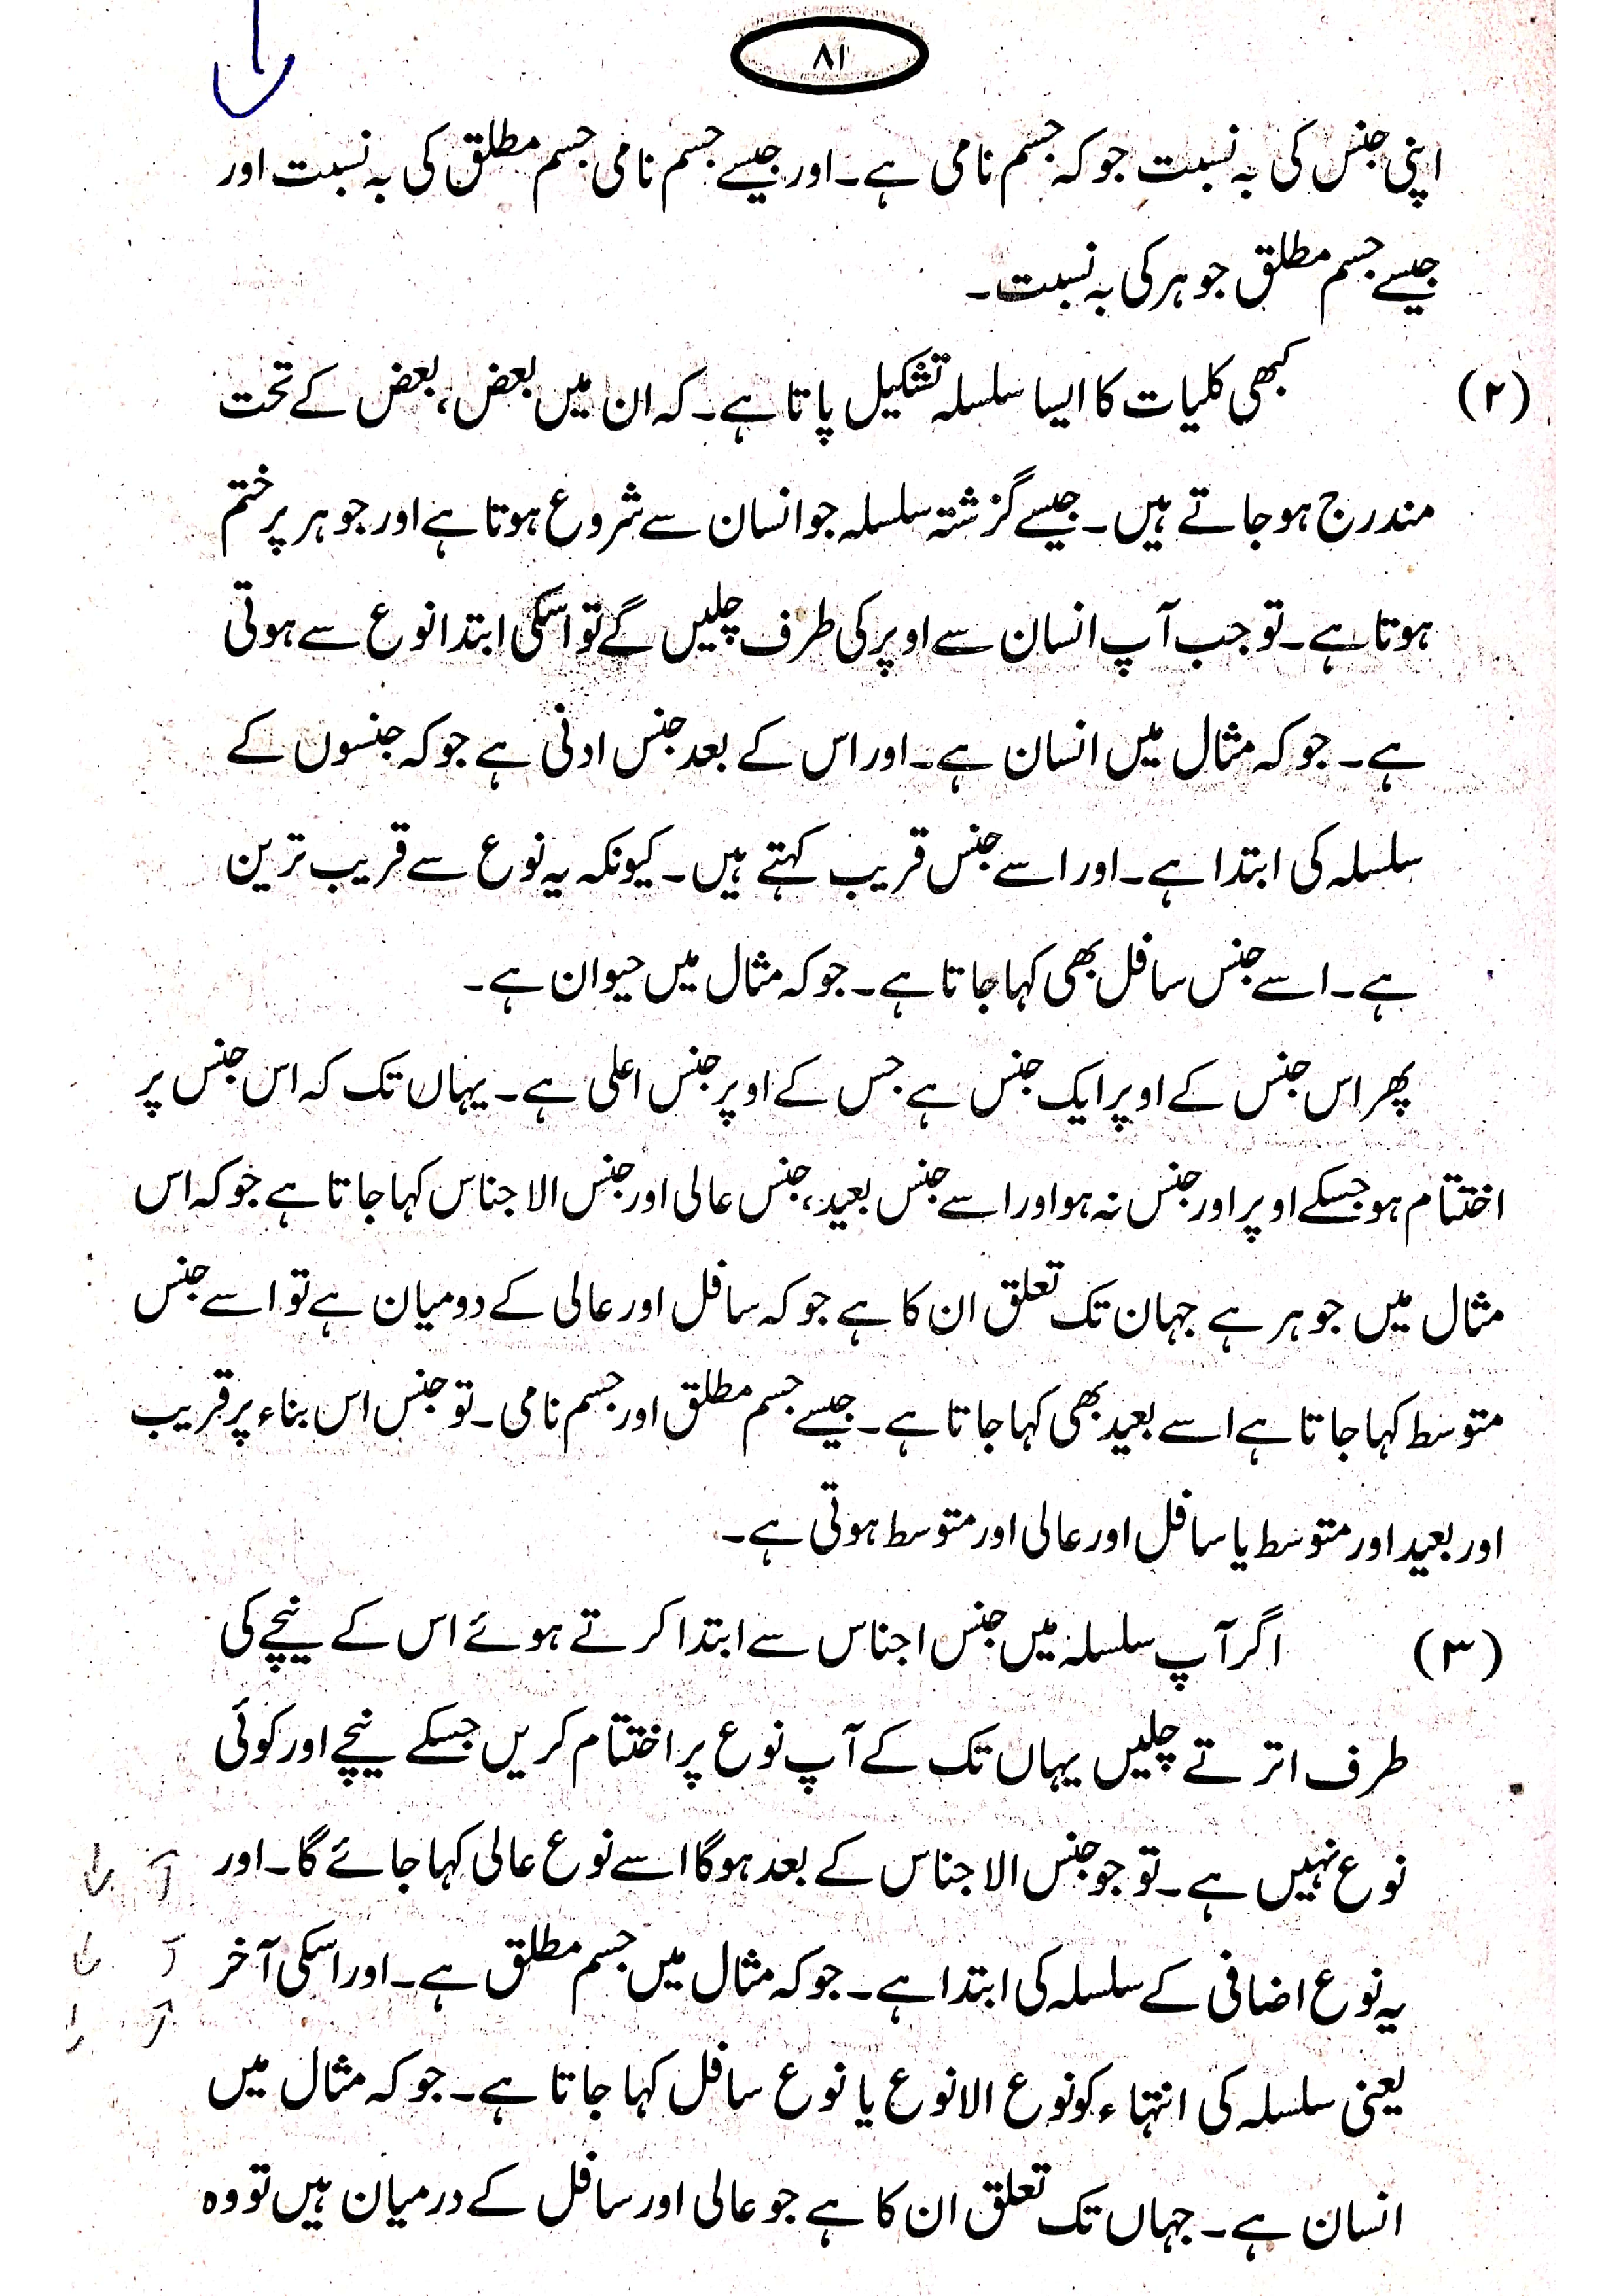 ۸۱
اپنی جنس کی بہ نسبت جو کہ جسم نامی ہے۔ اور جیسے جسم نامی جسم مطلق کی بہ نسبت اور
جیسے جسم مطلق جوہر کی بہ نسبت۔
(۲) کبھی کلیات کا ایسا سلسلہ تشکیل پاتا ہے۔ کہ ان میں بعض، بعض کے تحت
مندرج ہو جاتے ہیں۔ جیسے گزشتہ سلسلہ جو انسان سے شروع ہوتا ہے اور جوہر پر ختم
ہوتا ہے۔ تو جب آپ انسان سے اوپر کی طرف چلیں گے تو اسکی ابتدا نوع سے ہوتی
ہے۔ جو کہ مثال میں انسان ہے۔ اور اس کے بعد جنس ادنی ہے جو کہ جنسوں کے
سلسلہ کی ابتدا ہے۔ اور اسے جنس قریب کہتے ہیں۔ کیونکہ یہ نوع سے قریب ترین
ہے۔ اسے جنس سافل بھی کہا جاتا ہے۔ جو کہ مثال میں حیوان ہے۔
پھر اس جنس کے اوپر ایک جنس ہے جس کے اوپر جنس اعلی ہے۔ یہاں تک کہ اس جنس پر
اختتام ہو جسکے اوپر اور جنس نہ ہو اور اسے جنس بعید، جنس عالی اور جنس الاجناس کہا جاتا ہے جو کہ اس
مثال میں جوہر ہے جہان تک تعلق ان کا ہے جو کہ سافل اور عالی کے دومیان ہے تو اسے جنس
متوسط کہا جاتا ہے اسے بعید بھی کہا جاتا ہے۔ جیسے جسم مطلق اور جسم نامی۔ تو جنس اس بناء پر قریب
اور بعید اور متوسط یا سافل اور عالی اور متوسط ہوتی ہے۔
(۳) اگر آپ سلسلہ میں جنس اجناس سے ابتدا کرتے ہوئے اس کے نیچے کی
طرف اترتے چلیں یہاں تک کے آپ نوع پر اختتام کریں جسکے نیچے اور کوئی
نوع نہیں ہے۔ تو جو جنس الاجناس کے بعد ہوگا اسے نوع عالی کہا جائے گا۔ اور
یہ نوع اضافی کے سلسلہ کی ابتدا ہے۔ جو کہ مثال میں جسم مطلق ہے۔ اور اسکی آخر
یعنی سلسلہ کی انتہاء کو نوع الانوع یا نوع سافل کہا جاتا ہے۔ جو کہ مثال میں
انسان ہے۔ جہاں تک تعلق ان کا ہے جو عالی اور سافل کے درمیان ہیں تو وہ